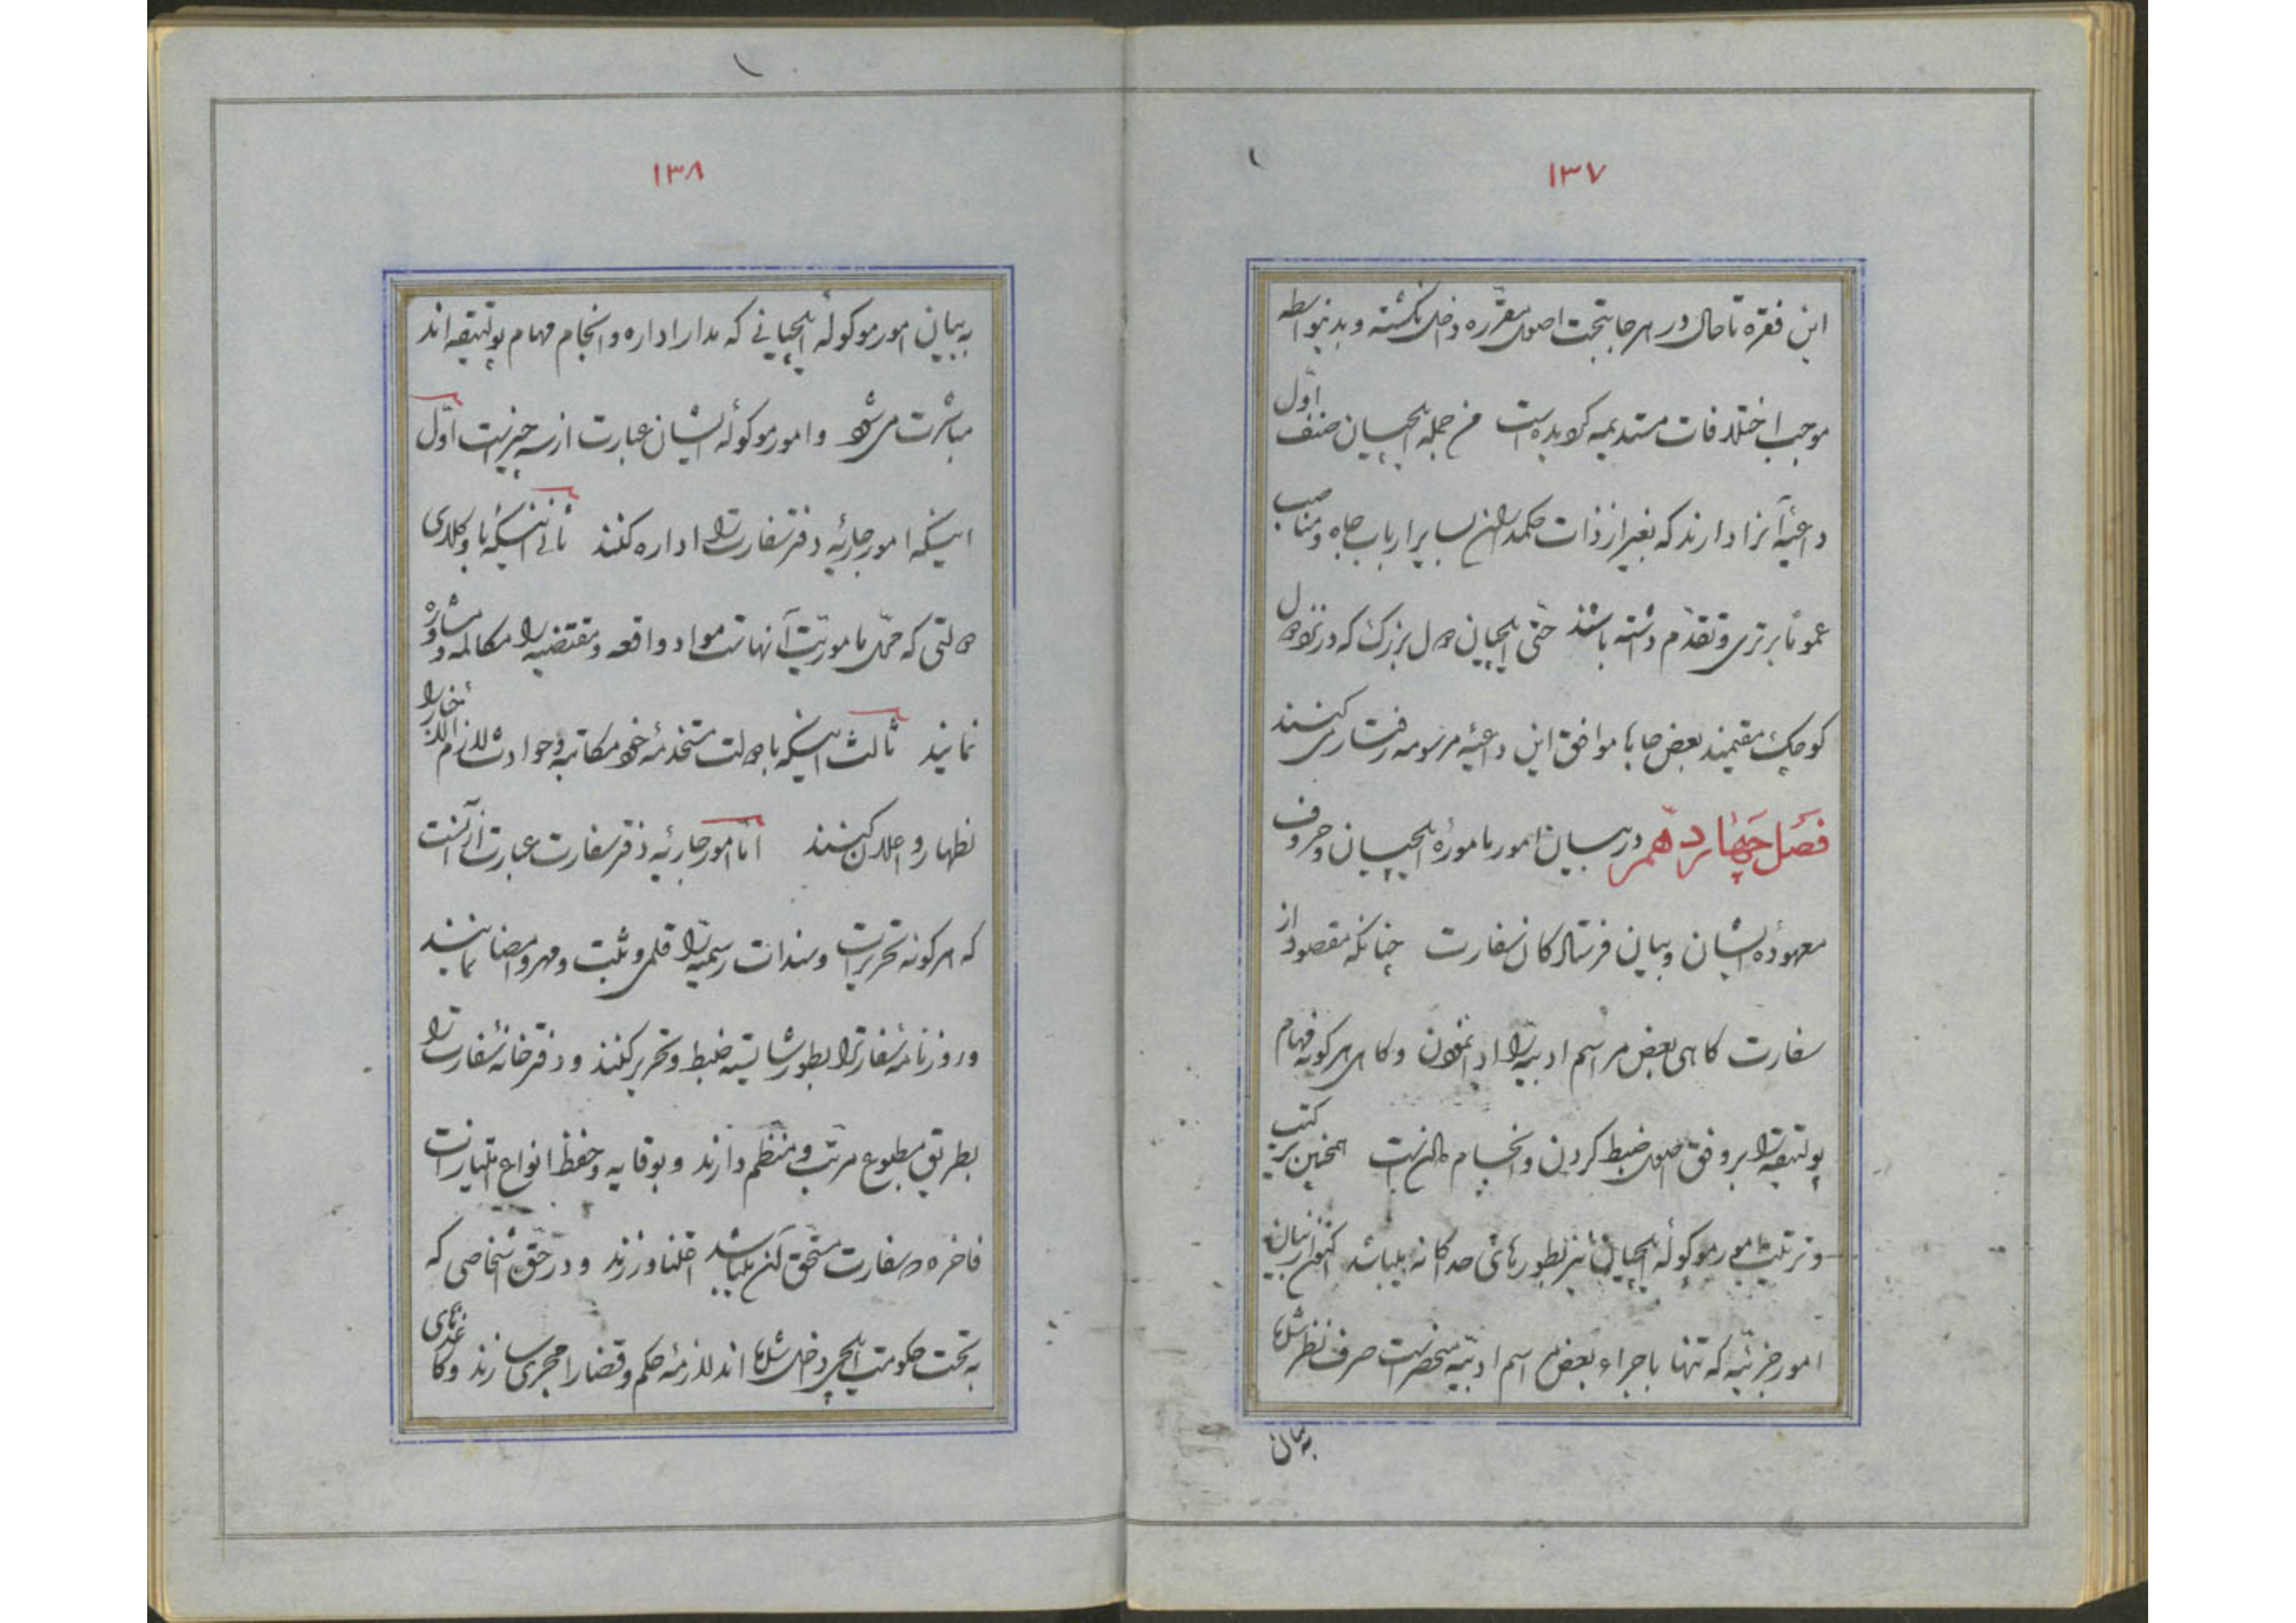 ۱۳۷
این فقره تا حال در هر جا بتحت اصول مقرّره داخل نگشته و بدینواسطه
موجب اختلافات مستدیمه گردیده است من جمله ایلچیان صنف اوّل
داعیهٔ آنرا دارند که بغیر از ذات حکمداران بسایر ارباب جاه و مناصب
عموماً برتری و تقدّم داشته باشند حتّی ایلچیان دول بزرگ که در نزد دول
کوچک مقیمند بعض جاها موافق این داعیهٔ مرسومه رفتار می کنند
فصل چهاردهم در بیان امور مامورهٔ ایلچیان و حروف
معهودهٔ ایشان و بیان فرستادگان سفارت چنانکه مقصود از
سفارت گاهی بعض مراسم ادبیه را ادا نمودن و گاهی هر گونه مهام
پولتیقه را بر وفق اصول ضبط کردن و انجام دادنست همچنین ترکیب
و ترتیب امور موکولهٔ ایلچیان نیز بطورهای جداگانه میباشد اکنون از بیان
امور جزئیه که تنها باجراء بعض مراسم ادبیّه منحصر است صرف نظر شده
به بیان
۱۳۸
به بیان امور موکولهٔ ایلچیانی که بدار اداره و انجام مهام پولتیقه اند
مباشرت می شود و امور موکولهٔ ایشان عبارت از سه چیز است اوّل
اینکه امور جاریهٔ دفتر سفارت را اداره کنند ثانی اینکه با وکلای
دولتی که محلّ ماموریّت آنهاست مواد واقعه و مقتضیه را مکالمه و مشاوره
نمایند ثالث اینکه با دولت مستخدمهٔ خود مکاتبه و حوادث لازم الاخبار را
اظهار و اعلان کنند امّا امور جاریهٔ دفتر سفارت عبارت از آنست
که هر گونه تحریرات و سندات رسمیّه را قلمی و ثبت و مهر و امضا نمایند
و روزنامهٔ سفارت را بطور شایسته ضبط و تحریر کنند و دفترخانهٔ سفارت را
بطریق مطبوع مرتّب و منظّم دارند و بوقایه و حفظ انواع امتیازات
فاخره که سفارت مستحق آن میباشد اعتنا ورزند و در حقّ اشخاصی که
به تحت حکومت ایلچی داخل شده اند لازمهٔ حکم و قضا را مجری سازند و کاغذهای